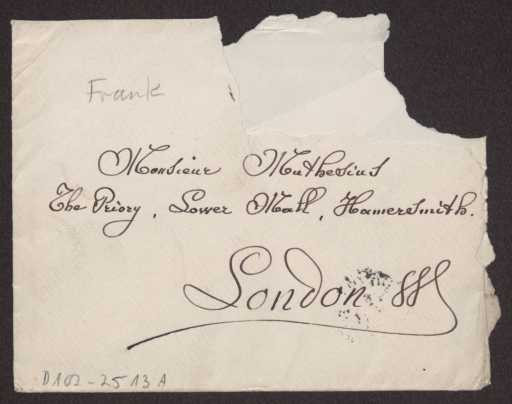 Frank
Monsieur Muthesius
The Priory, Lower Mall, Hamersmith.
London W
D102-2513 A